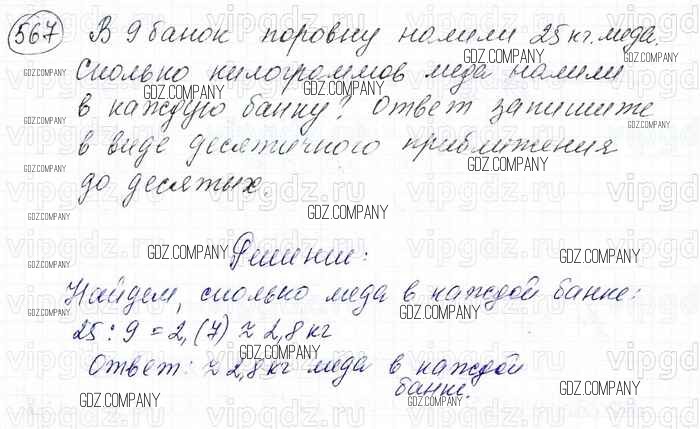 567 В 9 банок поровну налили 25 кг. меда.
Сколько килограммов меда налили
в каждую банку? Ответ запишите
в виде десятичного приближения
до десятых.
Решение:
Найдем, сколько меда в каждой банке:
25 : 9 = 2,(7) ≈ 2,8 кг
Ответ: ≈ 2,8 кг меда в каждой
банке.
GDZ.COMPANY
vipgdz.ru